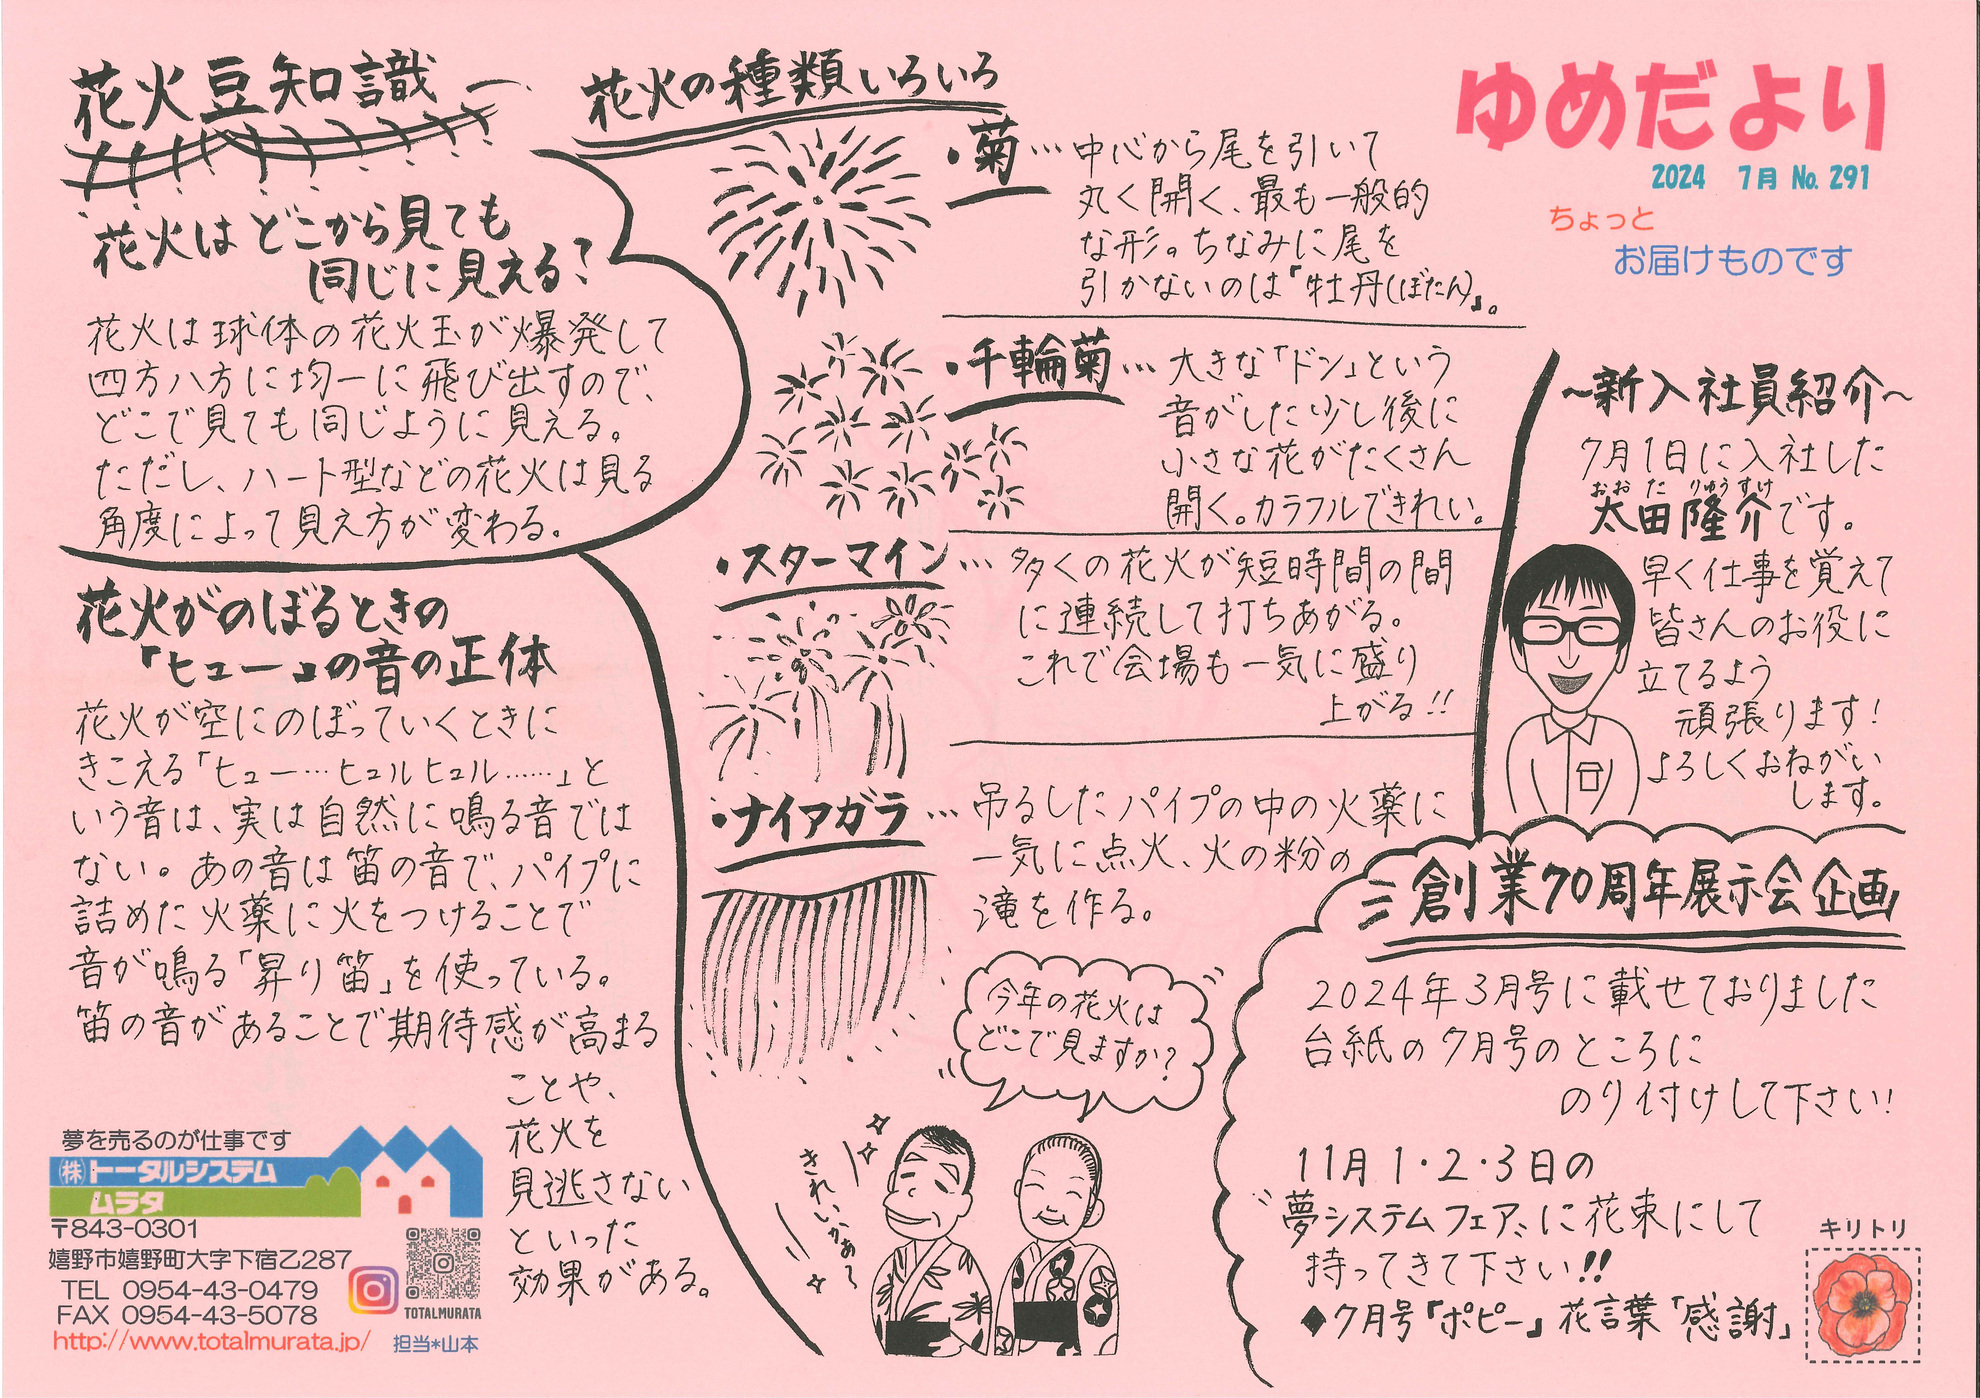 ゆめだより
2024 7月 No. 291
ちょっと
お届けものです
花火豆知識
花火はどこから見ても
同じに見える?
花火は球体の花火玉が爆発して
四方八方に均一に飛び出すので、
どこで見ても同じように見える。
ただし、ハート型などの花火は見る
角度によって見え方が変わる。
花火がのぼるときの
「ヒュー」の音の正体
花火が空にのぼっていくときに
きこえる「ヒュー…ヒュルヒュル……」と
いう音は、実は自然に鳴る音では
ない。あの音は笛の音で、パイプに
詰めた火薬に火をつけることで
音が鳴る「昇り笛」を使っている。
笛の音があることで期待感が高まる
ことや、
花火を
見逃さない
といった
効果がある。
花火の種類いろいろ
・菊…中心から尾を引いて
丸く開く、最も一般的
な形。ちなみに尾を
引かないのは『牡丹(ぼたん)』。
・千輪菊…大きな「ドン」という
音がした少し後に
小さな花がたくさん
開く。カラフルできれい。
・スターマイン…多くの花火が短時間の間
に連続して打ちあがる。
これで会場も一気に盛り
上がる!!
・ナイアガラ…吊るしたパイプの中の火薬に
一気に点火、火の粉の
滝を作る。
今年の花火は
どこで見ますか?
きれいかぁ〜
~新入社員紹介~
7月1日に入社した
おおた りゅうすけ
太田隆介です。
早く仕事を覚えて
皆さんのお役に
立てるよう
頑張ります!
よろしくおねがい
します。
創業70周年展示会企画
2024年3月号に載せておりました
台紙の7月号のところに
のり付けして下さい!
11月1・2・3日の
〝夢システムフェア〟に花束にして
持ってきて下さい!!
◆7月号『ポピー』花言葉「感謝」
キリトリ
夢を売るのが仕事です
㈱トータルシステム
ムラタ
〒843-0301
嬉野市嬉野町大字下宿乙287
TEL 0954-43-0479
FAX 0954-43-5078
http://www.totalmurata.jp/
TOTALMURATA
担当*山本